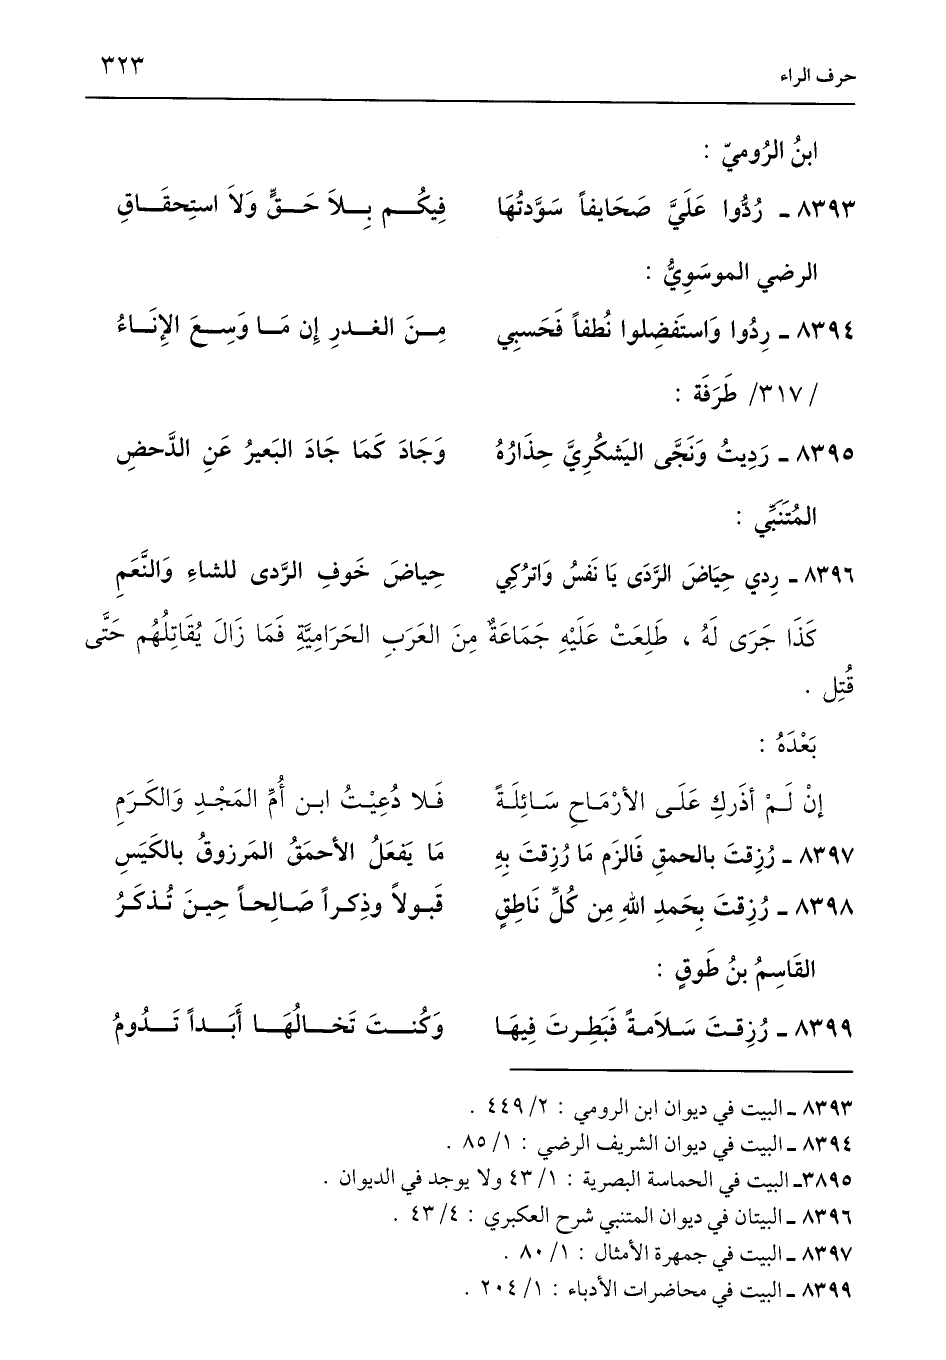 حرف الراء ٣٢٣
ابنُ الرُوميّ :
٨٣٩٣ ـ رُدُّوا عَلَيَّ صَحَايفاً سَوَّدتُهَا فِيكُـــم بِـــلاَ حَـــقٍّ وَلاَ استِحقَـــاقِ
الرضي الموسَوِيُّ :
٨٣٩٤ ـ رِدُوا وَاستَفضِلوا نُطفاً فَحَسبِي مِـــنَ الغـــدرِ إن مَـــا وَسِـــعَ الإنَـــاءُ
/ ٣١٧/ طَرَفَة :
٨٣٩٥ ـ رَدِيتُ وَنَجَّى اليَشكُرِيَّ حِذَارُهُ وَجَادَ كَمَا جَادَ البَعيرُ عَنِ الدَّحضِ
المُتَنَبِّي :
٨٣٩٦ ـ رِدِي حِيَاضَ الرَّدَى يَا نَفسُ وَاترُكِي حِياضَ خَوفِ الرَّدى للشاءِ وَالنَّعَمِ
كَذَا جَرَى لَهُ ، طَلِعَتْ عَلَيْهِ جَمَاعَةٌ مِنَ العَرَبِ الحَرَامِيَّةِ فَمَا زَالَ يُقَاتِلُهُم حَتَّى
قُتِل .
بَعْدَهُ :
إنْ لَـمْ أذَركِ عَلَـى الأرْمَـاحِ سَـائِلَـةً فَـلا دُعِيْـتُ ابـن أُمِّ المَجْـدِ وَالكَـرَمِ
٨٣٩٧ ـ رُزِقتَ بالحمقِ فَالزَم مَا رُزِقتَ بِهِ مَا يَفعَلُ الأحمَقُ المَرزوقُ بالكَيَسِ
٨٣٩٨ ـ رُزِقتَ بِحَمدِ اللهِ مِن كُلِّ نَاطِقٍ قَبـولاً وذِكـراً صَـالِحـاً حِيـنَ تُـذكَـرُ
القَاسِمُ بنُ طَوقٍ :
٨٣٩٩ ـ رُزِقـتَ سَـلاَمـةً فَبَطِـرتَ فِيهَـا وَكُنـــتَ تَخـــالُهَـــا أَبَـــداً تَـــدُومُ
٨٣٩٣ ـ البيت في ديوان ابن الرومي : ٢/ ٤٤٩ .
٨٣٩٤ ـ البيت في ديوان الشريف الرضي : ١/ ٨٥ .
٣٨٩٥ـ البيت في الحماسة البصرية : ١/ ٤٣ ولا يوجد في الديوان .
٨٣٩٦ ـ البيتان في ديوان المتنبي شرح العكبري : ٤/ ٤٣ .
٨٣٩٧ ـ البيت في جمهرة الأمثال : ١/ ٨٠ .
٨٣٩٩ ـ البيت في محاضرات الأدباء : ١/ ٢٠٤ .